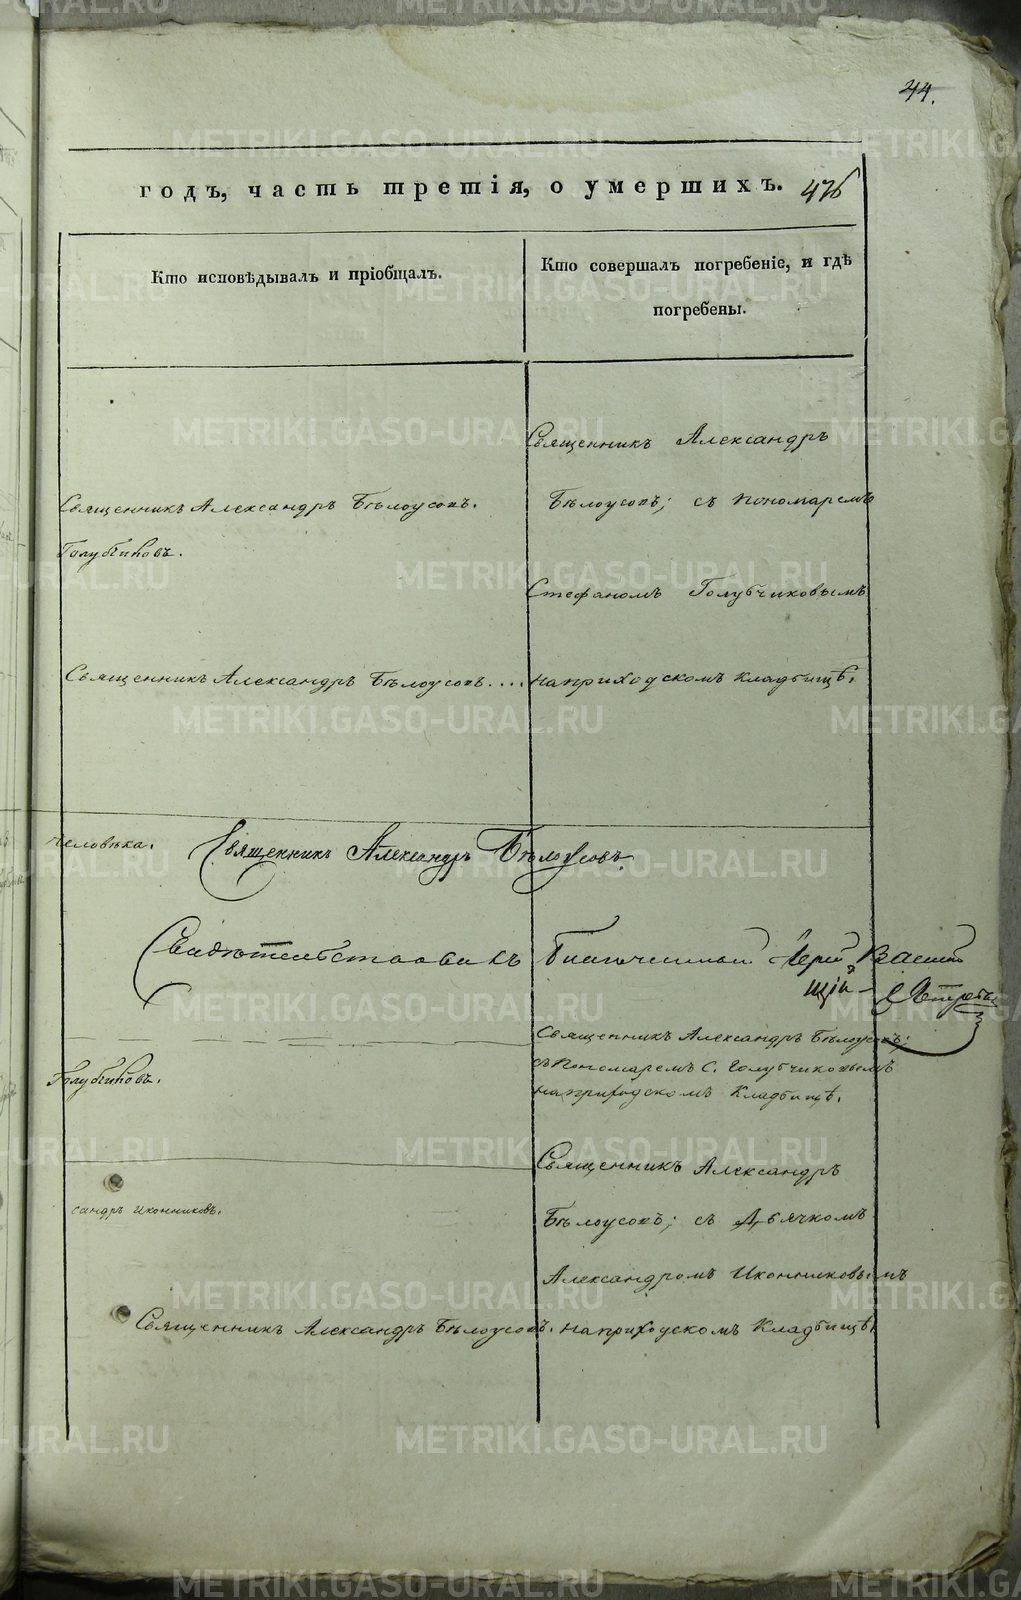 44.
годъ, часть третія, о умершихъ. 476
Кто исповѣдывалъ и пріобщалъ.
Кто совершалъ погребеніе, и гдѣ
погребены.
Священникъ Александръ
Священникъ Александръ Бѣлоусовъ.
Бѣлоусовъ; съ пономаремъ
Голубчиковъ.
Стефаномъ Голубчиковымъ
Священникъ Александръ Бѣлоусовъ....
на приходскомъ кладбищѣ.
человѣка.
Священникъ Александръ Бѣлоусовъ.
Свидѣтельствовалъ Благочинный Іерей Василій
Священникъ Александръ Бѣлоусовъ;
съ Пономаремъ С. Голубчиковымъ
на приходскомъ Кладбищѣ.
Голубчиковъ.
Священникъ Александръ
сандръ Иконниковъ.
Бѣлоусовъ; съ Дьячкомъ
Александромъ Иконниковымъ
Священникъ Александръ Бѣлоусовъ.
на приходскомъ Кладбищѣ.
METRIKI.GASO-URAL.RU